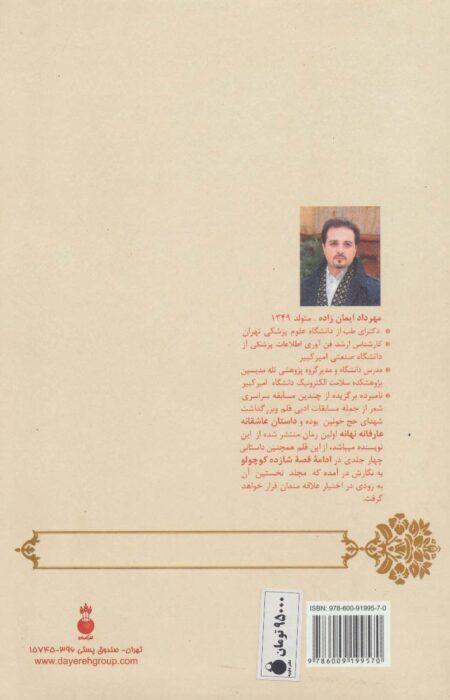 مهرداد ایمان زاده . متولد ۱۳۴۹
دکترای طب از دانشگاه علوم پزشکی تهران
کارشناس ارشد فن آوری اطلاعات پزشکی از
دانشگاه صنعتی امیرکبیر
مدرس دانشگاه و مدیر گروه پژوهشی تله مدیسین
پژوهشکده سلامت الکترونیک دانشگاه امیرکبیر
نامبرده برگزیده از چندین مسابقه سراسری
شعر از جمله مسابقات ادبی قلم وبزرگداشت
شهدای حج خونین بوده و داستان عاشقانه
عارفانه نهانه اولین رمان منتشر شده از این
نویسنده میباشد، از این قلم همچنین داستانی
چهار جلدی در ادامهٔ قصهٔ شازده کوچولو
به نگارش در آمده که مجلد نخستین آن
به زودی در اختیار علاقه مندان قرار خواهد
گرفت.
تهران- صندوق پستی ۳۹۶-۱۵۷۴۵
www.dayerehgroup.com
۹۵۰۰۰ تومان
ISBN: 978-600-91995-7-0
9 786009 199570